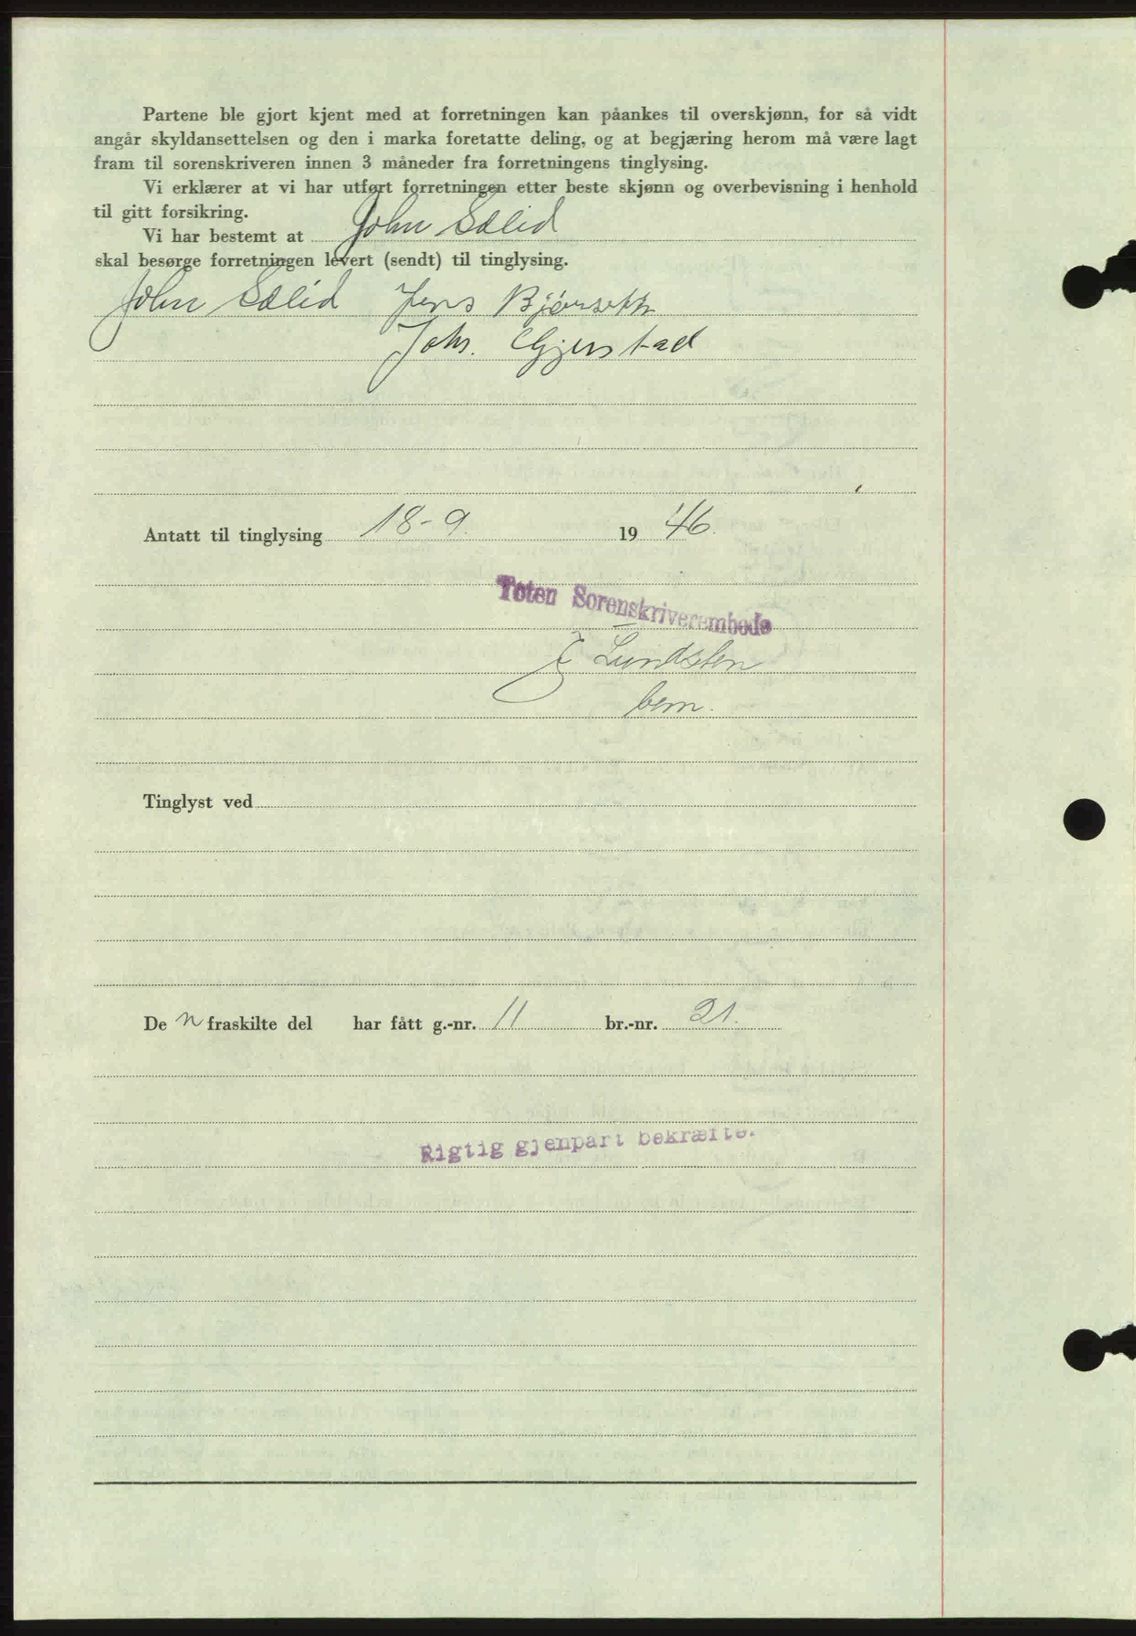 Partene ble gjort kjent med at forretningen kan påankes til overskjønn, for så vidt
angår skyldansettelsen og den i marka foretatte deling, og at begjæring herom må være lagt
fram til sorenskriveren innen 3 måneder fra forretningens tinglysing.
Vi erklærer at vi har utført forretningen etter beste skjønn og overbevisning i henhold
til gitt forsikring.
Vi har bestemt at John Sælid
skal besørge forretningen levert (sendt) til tinglysing.
John Sælid Jens Bjørseth
Johs. Gjerstad
Antatt til tinglysing 18-9. 19 46.
Toten Sorenskriverembede
E Lundsten
bem.
Tinglyst ved
De n fraskilte del har fått g.-nr. 11 br.-nr. 21.
Rigtig gjenpart bekræfte.